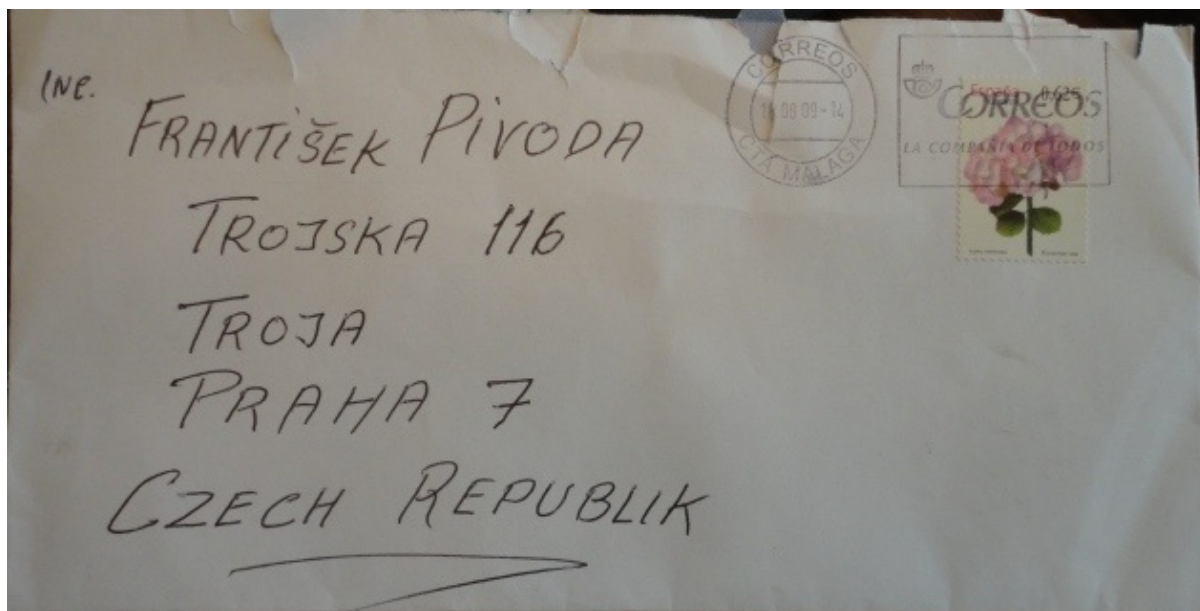 ING.
FRANTIŠEK PIVODA
TROJSKA 116
TROJA
PRAHA 7
CZECH REPUBLIK
CORREOS
08 09-14
CTA MALAGA
España 0,62€
CORREOS
LA COMPAÑÍA DE TODOS